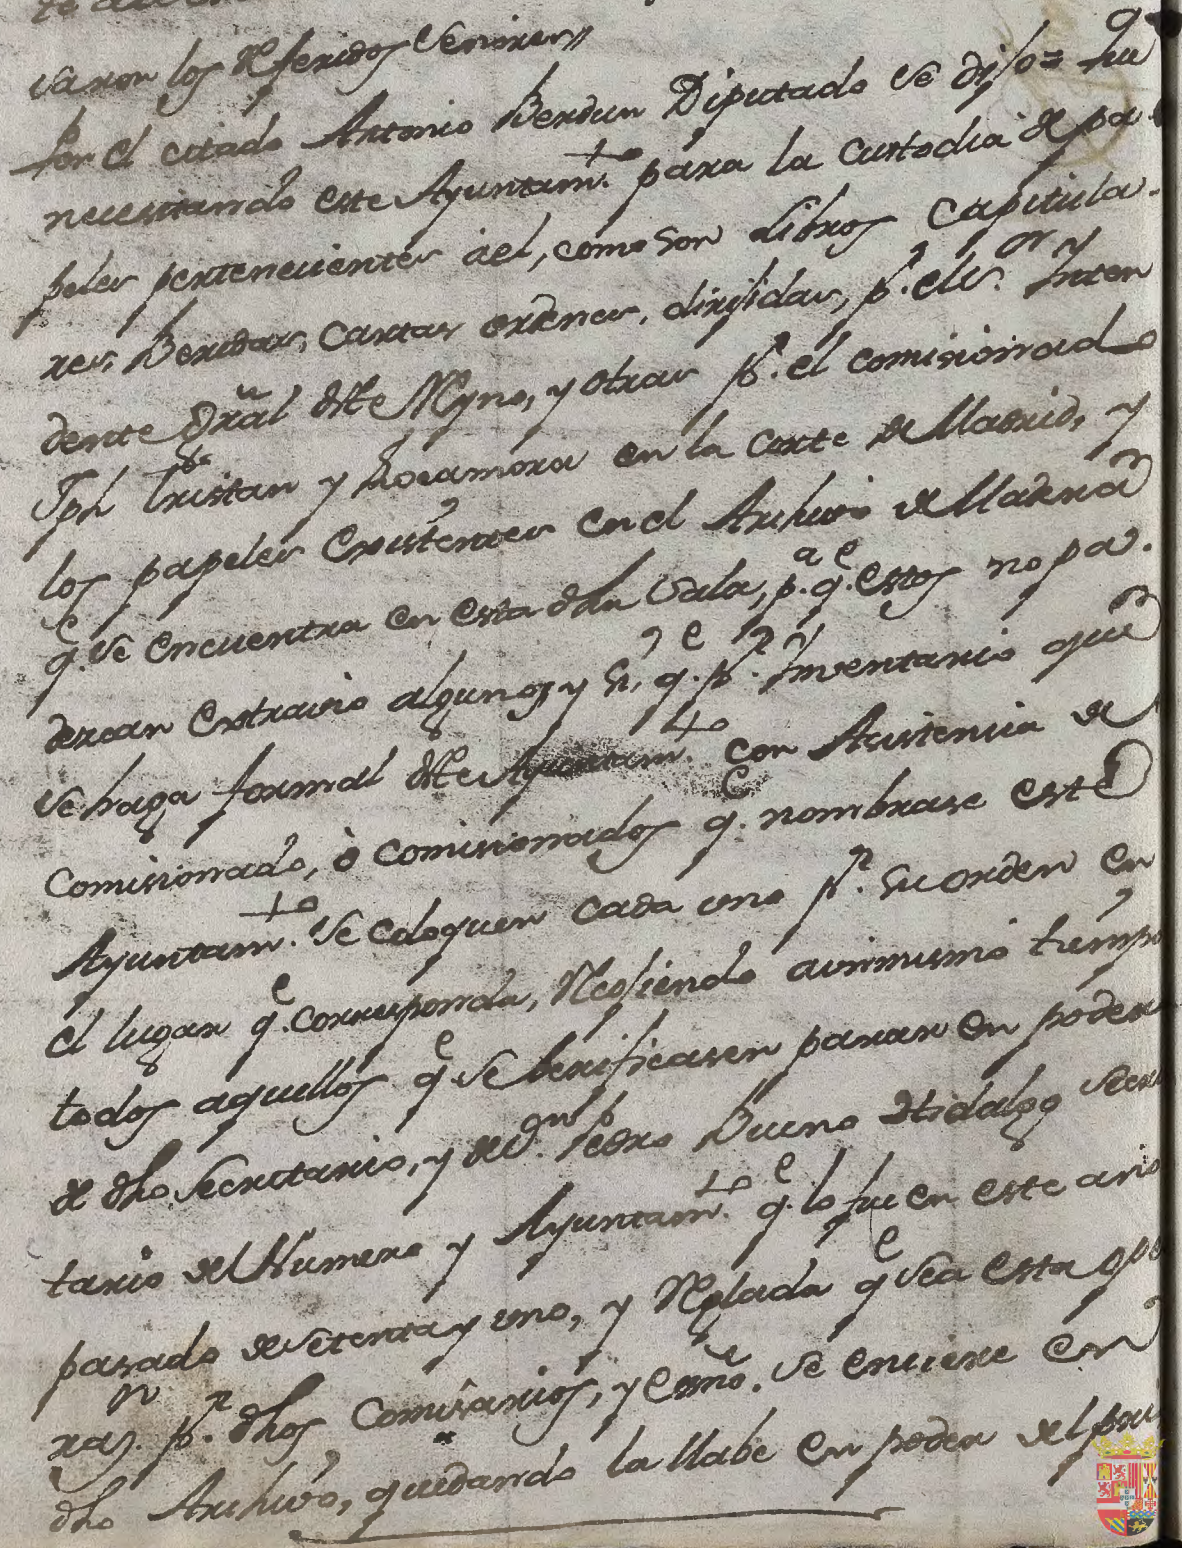 varon los Referidos Señores //
Por el citado Antonio Berdun Diputado se dijo = Que
necesitando este Ayuntam.to para la Custodia de pa
peles pertenecientes a el, como son Libros Capitula
res, Beredas, Cartas ordenes, dirijidas, p.r el S.or Inten
dente Gral deste Reyno, y otras p.r el comisionado
Jph Tristan y Rocamora en la Corte de Madrid, y
los papeles Existentes en el Archivo de Madera
q.e se encuentra en esta dha Sala, p.a q.e estos no pa
dezcan Extravio alguno; y Si, q.e p.r Imventario que
se haga formal deste Ayuntam.to con Asistencia de
Comisionado, ò Comisionados q.e nombrase este
Ayuntam.to se coloquen cada uno p.r su orden en
el lugar q.e corresponda, Recojiendo asimismo tiempo
todos aquellos q.e se berificasen parar en poder
de dho Secretario, y de D.n Pedro Bueno Hidalgo Secre
tario del Numero y Ayuntam.to q.e lo fue en este año
pasado de setenta y uno, y Reglada q.e sea esta ope
raz.n p.r dhos Comisarios, y Essno. se encierre en
dho Archivo, quedando la llabe en poder del pre